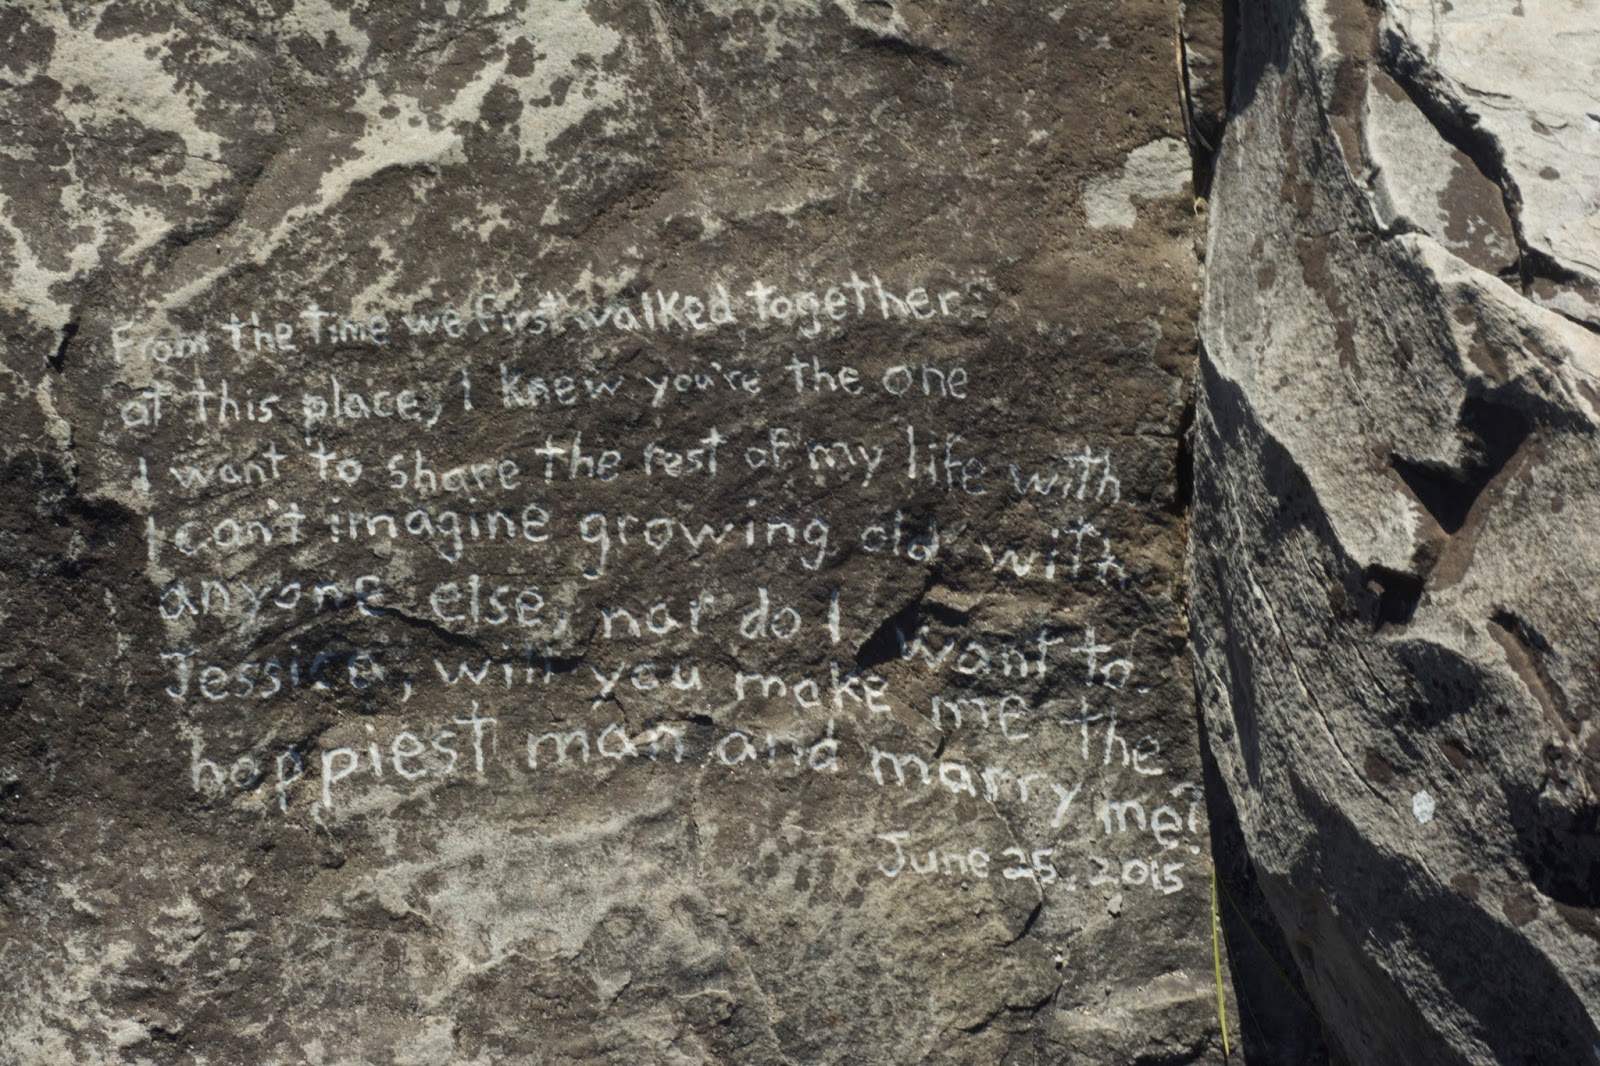 From the time we first walked together
at this place, I knew you're the one
I want to share the rest of my life with
I can't imagine growing old with
anyone else, nor do I want to.
Jessica, will you make me the
happiest man and marry me?
June 25, 2015